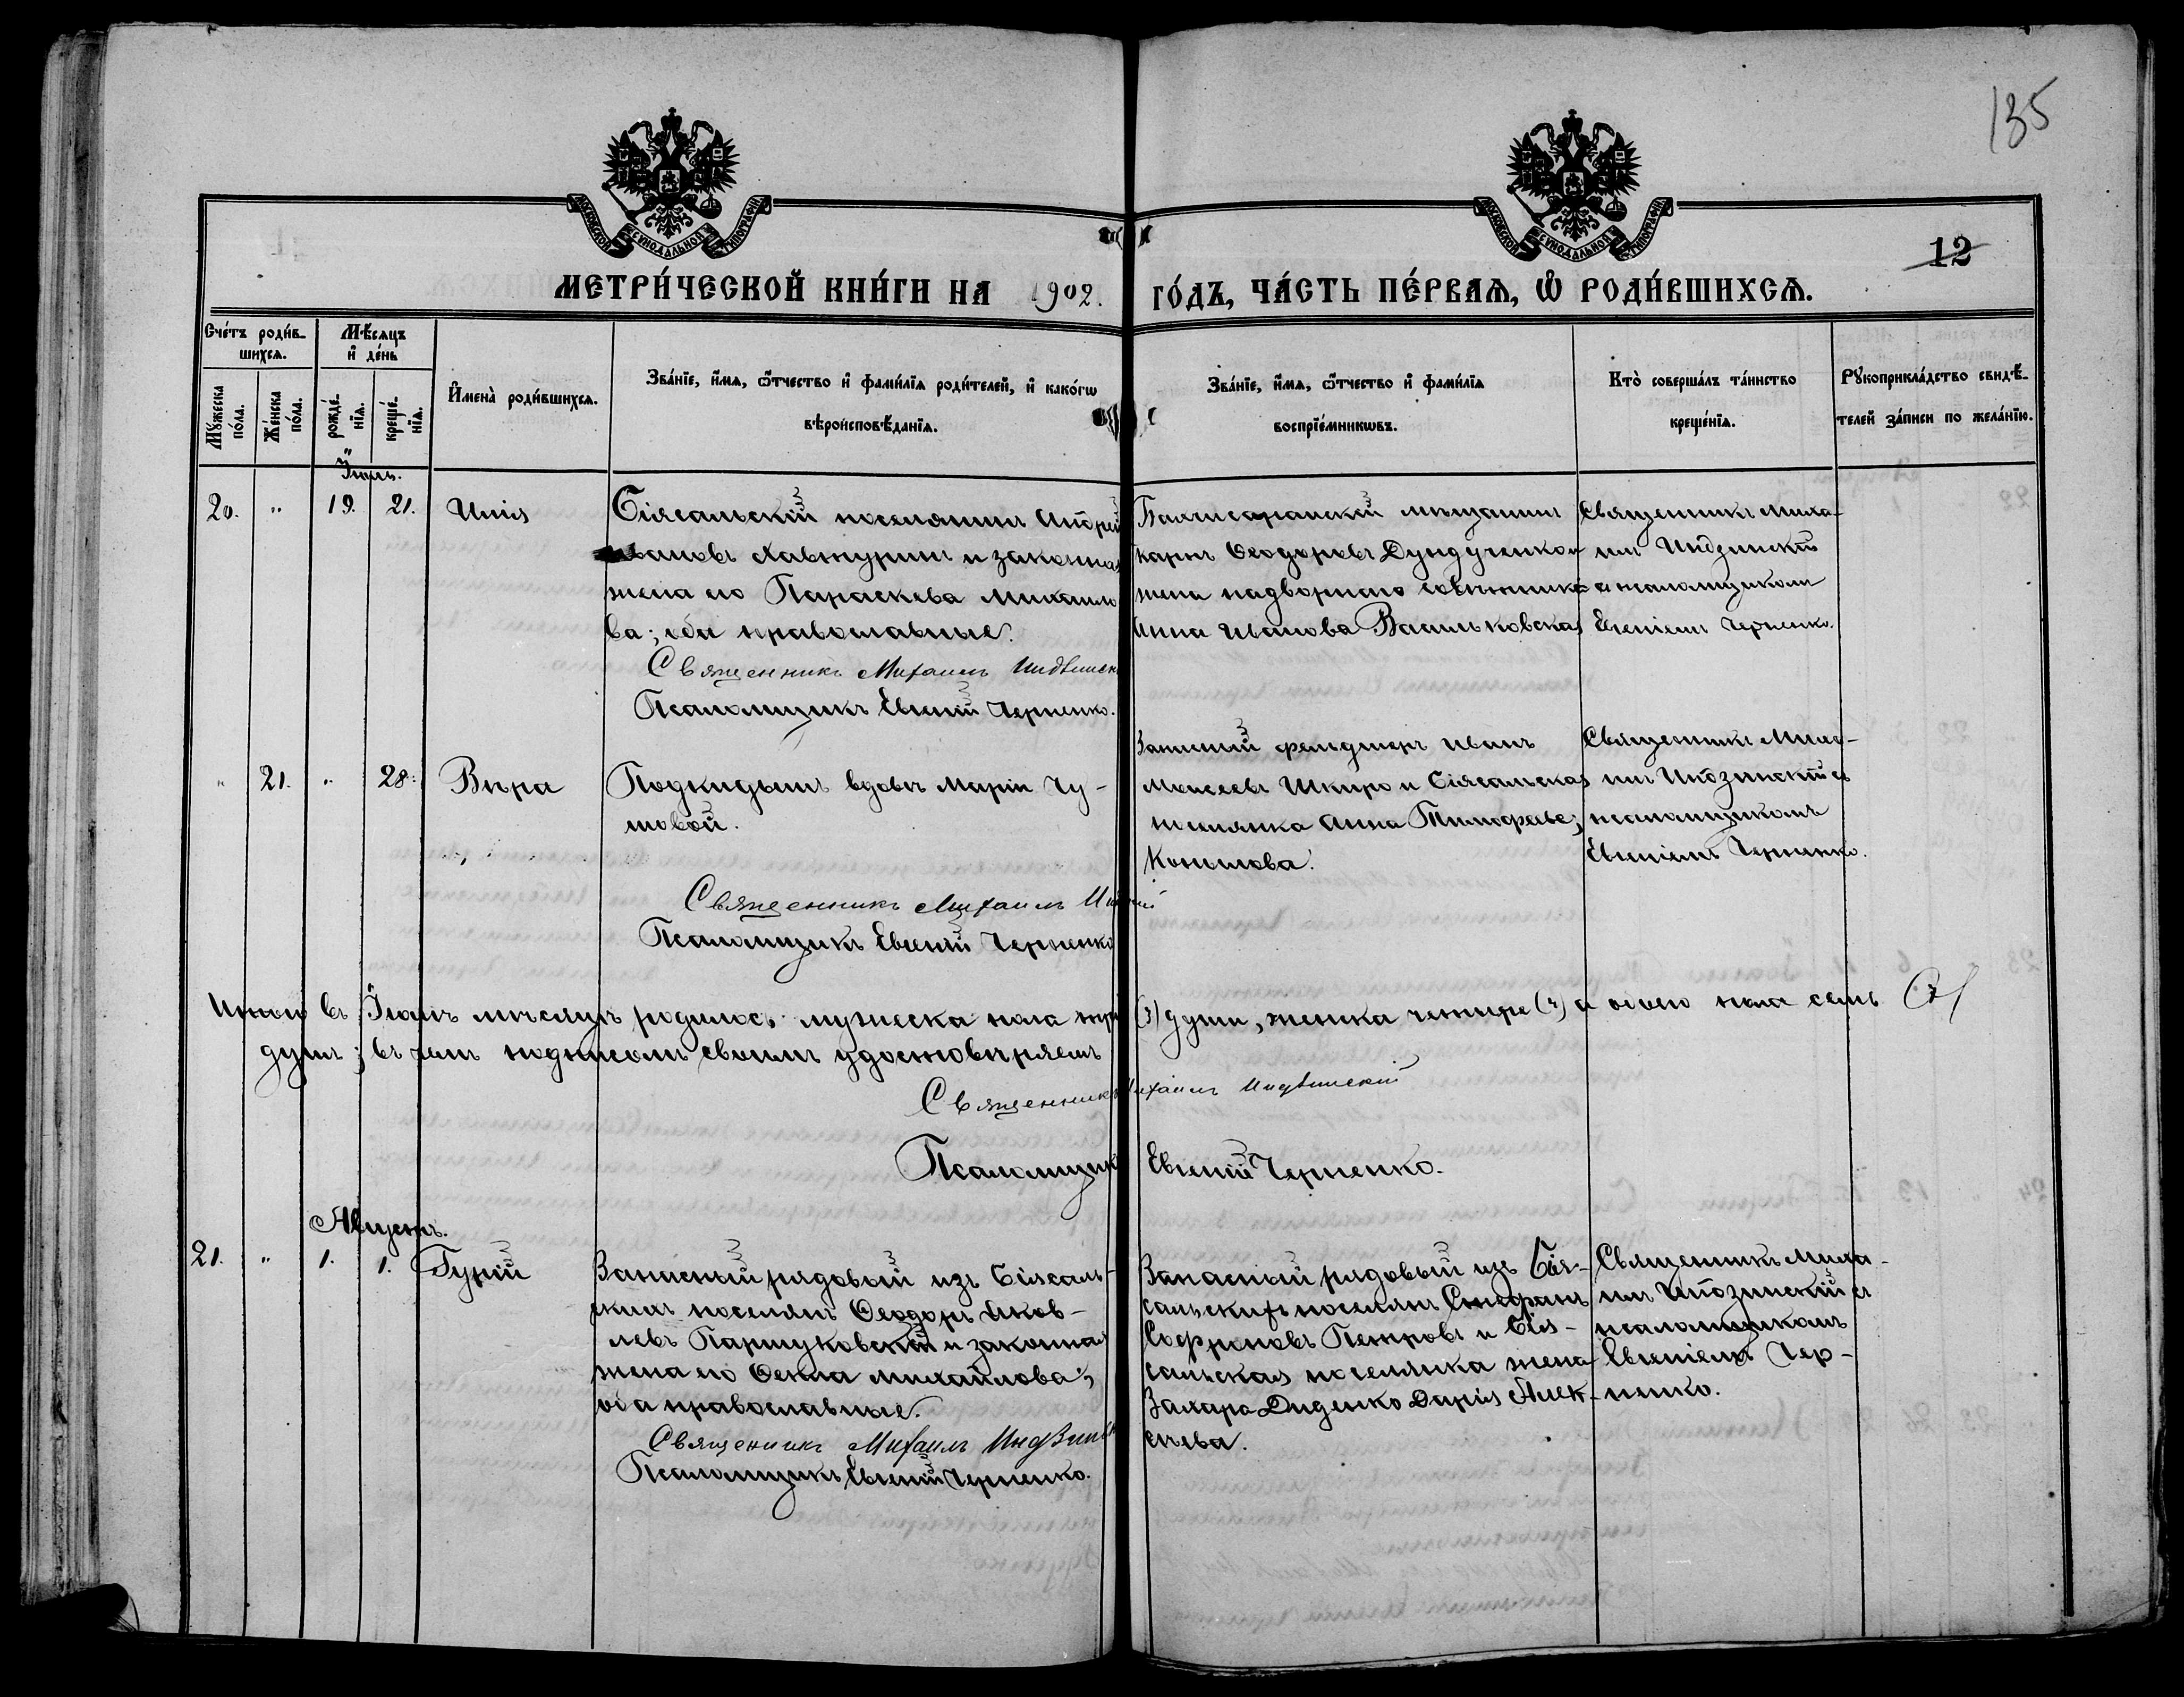 135
МОСКОВСКОЙ СѴНОДАЛЬНОЙ ТИПОГРАФІИ
МОСКОВСКОЙ СѴНОДАЛЬНОЙ ТИПОГРАФІИ
12
МЕТРИ́ЧЕСКОЙ КНИ́ГИ НА 1902. ГО́ДЪ, ЧА́СТЬ ПЕ́РВАѦ, Ѡ҆ РОДИ́ВШИХСѦ.
Сче́тъ роди́в-
шихсѧ.
Мѣ́сѧцъ
и҆ де́нь
Мꙋ́жеска по́ла.
Же́нска по́ла.
рожде́-
нїѧ.
креще́-
нїѧ.
И҆мена̀ роди́вшихсѧ.
Зва́нїе, и҆́мѧ, ѻ҆́тчество и҆ фами́лїѧ роди́телей, и҆ како́гѡ
вѣроисповѣ́данїѧ.
Зва́нїе, и҆́мѧ, ѻ҆́тчество и҆ фами́лїѧ
воспрїе́мникѡвъ.
Кто̀ соверша́лъ та́инство
креще́нїѧ.
Рꙋкоприкла́дство свидѣ́-
телей за́писи по жела́нїю.
Іюль.
20. " 19. 21.
Біясальскій поселянинъ
Ивановъ и законная
жена его Параскева Михаило
ва; оба православные.
Священникъ Михаилъ
Псаломщикъ Евгеній Черненко.
Бахчисарайскій мѣщанинъ
Карпъ Ѳеодоровъ Дундученко и
жена надворнаго совѣтника
Анна Иванова Васильковская
Священникъ Миха-
илъ Индзинскій
съ псаломщикомъ
Евгеніемъ Черненко.
" 21. " 28. Вѣра
Подкидышъ вдовѣ Маріи Чу-
мовой.
Священникъ Михаилъ
Псаломщикъ Евгеній Черненко
Запасный фельдшеръ Иванъ
Моисеевъ Шкиро и Біясальская
поселянка Анна Тимофеева
Священникъ Миха-
илъ Индзинскій съ
псаломщикомъ
Евгеніемъ Черненко.
Итого въ Іюлѣ мѣсяцѣ родилось мужеска пола три (3) души, женска четыре (4) а обоего пола семь (7)
душъ; въ чемъ подписомъ своимъ удостовѣряемъ
Священникъ Михаилъ Индзинскій
Псаломщикъ Евгеній Черненко.
Августъ.
21. " 1. 1. Гурій
Запасный рядовый изъ Біясаль-
скихъ поселянъ Ѳеодоръ Яков-
левъ Паршуковскій и законная
жена его Ѳекла Михайлова;
оба православные.
Священникъ Михаилъ
Псаломщикъ Евгеній Черненко.
Запасный рядовый изъ Біа-
сальскихъ поселянъ Стефанъ
Софроновъ Петровъ и Бія-
сальская поселянка жена
Захара Диденко Дарія Алек-
сѣева.
Священникъ Миха-
илъ Индзинскій съ
псаломщикомъ
Евгеніемъ Чер-
ненко.